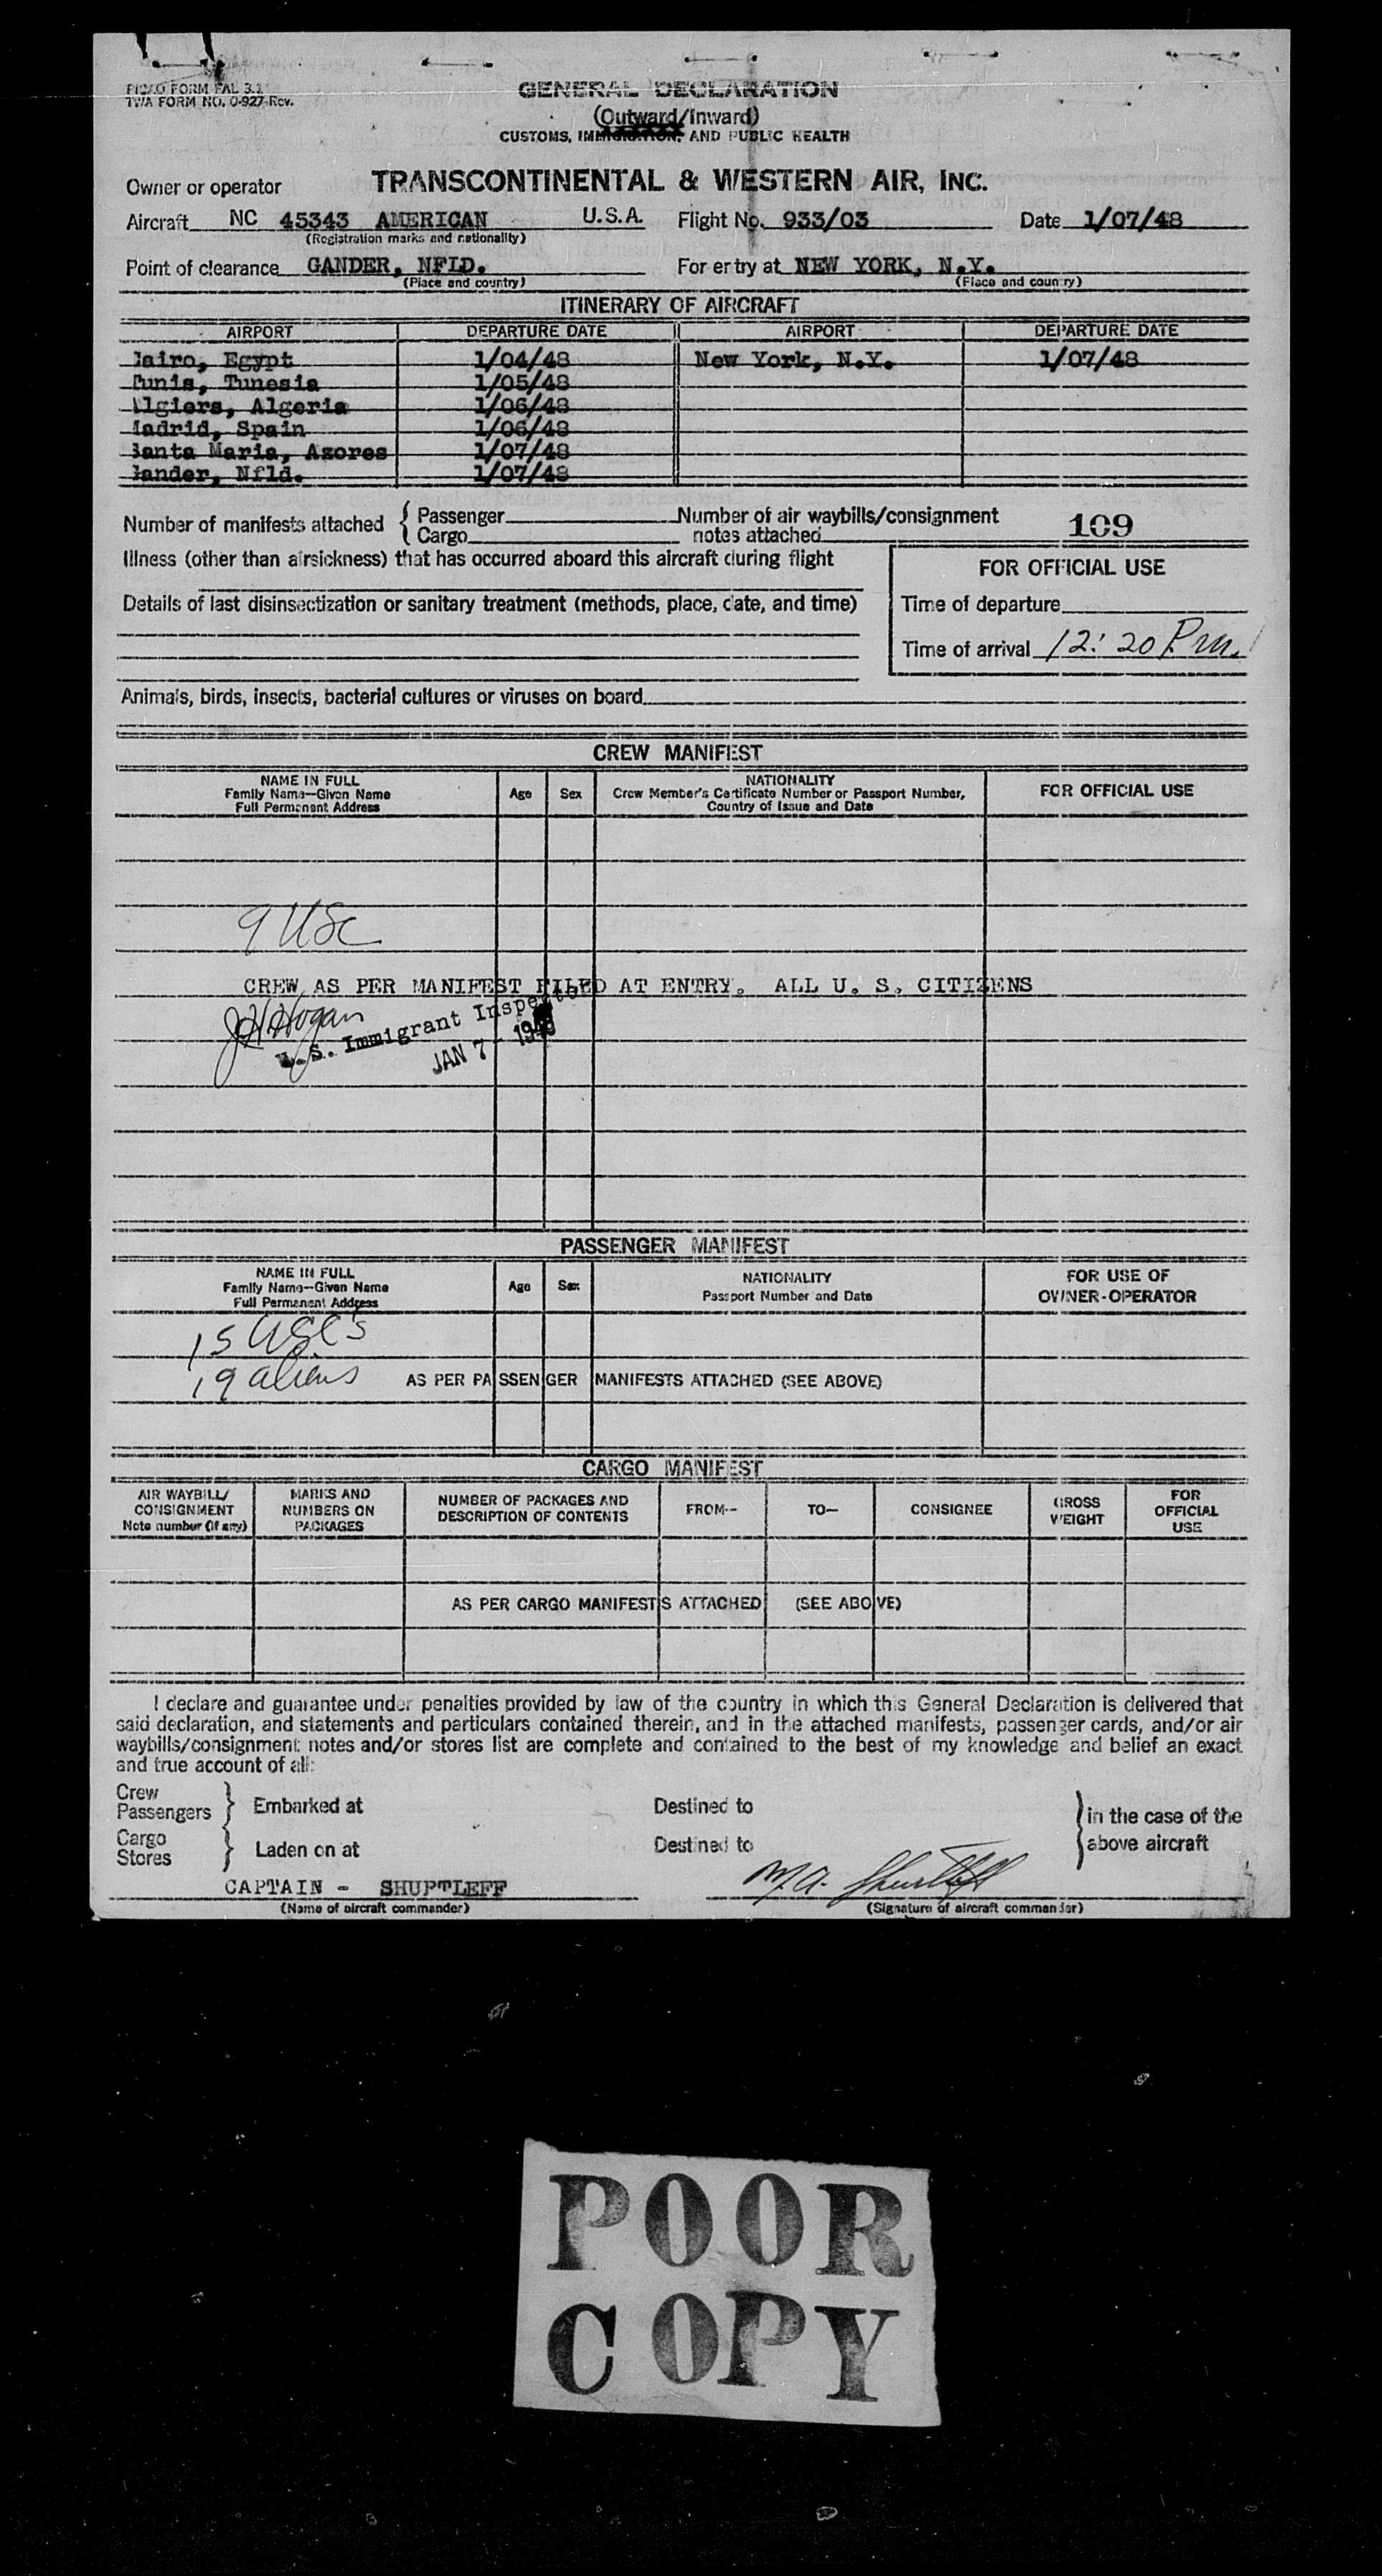 PICAO FORM FAL 3.1
TWA FORM NO. O-927-Rev.
GENERAL DECLARATION
(Outward/Inward)
CUSTOMS, IMMIGRATION, AND PUBLIC HEALTH
Owner or operator TRANSCONTINENTAL & WESTERN AIR, INC.
Aircraft NC 45343 AMERICAN U.S.A. Flight No. 933/03 Date 1/07/48
(Registration marks and nationality)
Point of clearance GANDER, NFLD. For entry at NEW YORK, N.Y.
(Place and country) (Place and country)
ITINERARY OF AIRCRAFT
AIRPORT DEPARTURE DATE AIRPORT DEPARTURE DATE
Cairo, Egypt 1/04/48 New York, N.Y. 1/07/48
Tunis, Tunesia 1/05/48
Algiers, Algeria 1/06/48
Madrid, Spain 1/06/48
Santa Maria, Azores 1/07/48
Gander, Nfld. 1/07/48
Number of manifests attached { Passenger Number of air waybills/consignment 109
Cargo notes attached
Illness (other than airsickness) that has occurred aboard this aircraft during flight
FOR OFFICIAL USE
Details of last disinsectization or sanitary treatment (methods, place, date, and time)
Time of departure
Time of arrival 12:20 P.m.
Animals, birds, insects, bacterial cultures or viruses on board
CREW MANIFEST
NAME IN FULL
Family Name—Given Name
Full Permanent Address
Age Sex
NATIONALITY
Crew Member's Certificate Number or Passport Number,
Country of Issue and Date
FOR OFFICIAL USE
9 USC
CREW AS PER MANIFEST FILED AT ENTRY. ALL U. S. CITIZENS
J H Hogan
U.S. Immigrant Inspector
JAN 7 - 1948
PASSENGER MANIFEST
NAME IN FULL
Family Name—Given Name
Full Permanent Address
Age Sex
NATIONALITY
Passport Number and Date
FOR USE OF
OWNER-OPERATOR
15 USC's
19 aliens AS PER PASSENGER MANIFESTS ATTACHED (SEE ABOVE)
CARGO MANIFEST
AIR WAYBILL/
CONSIGNMENT
Note number (if any)
MARKS AND
NUMBERS ON
PACKAGES
NUMBER OF PACKAGES AND
DESCRIPTION OF CONTENTS
FROM— TO— CONSIGNEE
GROSS
WEIGHT
FOR
OFFICIAL
USE
AS PER CARGO MANIFESTS ATTACHED (SEE ABOVE)
I declare and guarantee under penalties provided by law of the country in which this General Declaration is delivered that
said declaration, and statements and particulars contained therein, and in the attached manifests, passenger cards, and/or air
waybills/consignment notes and/or stores list are complete and contained to the best of my knowledge and belief an exact
and true account of all:
Crew
Passengers } Embarked at Destined to } in the case of the
Cargo
Stores } Laden on at Destined to above aircraft
CAPTAIN - SHURTLEFF M.A. Shurtleff
(Name of aircraft commander) (Signature of aircraft commander)
POOR
COPY